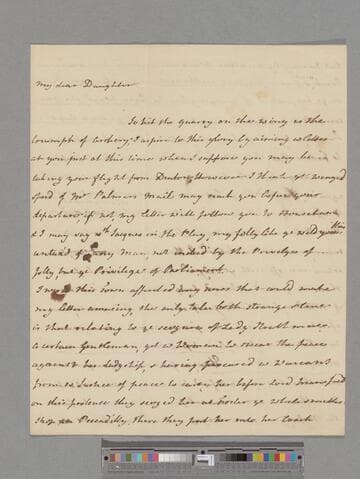 My dear Daughter
To hit the quarry on the wing is the
triumph of archery, I aspire to this glory by aiming a letter
at you just at this time when I suppose you may be
taking your flight from Denton, However I think ye winged
speed of Mr Palmers Mail may reach you before your
departure, if not my letter will follow you to
& I may say wth Jacques in the Play, my folly like ye wild goose flies
unclaim'd of any man, not ended by the Privelege of
folly but ye Privilege of Parliament.
I wish this Town afforded any news that could make
my letter amusing, the only tale both strange & true
is that relating to ye seizure of Lady Strath
a certain Gentleman, get a Woman to swear the peace
against her Ladyship, & having procured a Warrant
from a Justice of peace to carry her before Lord Mansfield
on this pretence they seized her at Forster ye
shop in Piccadilly, there they put her into her Coach